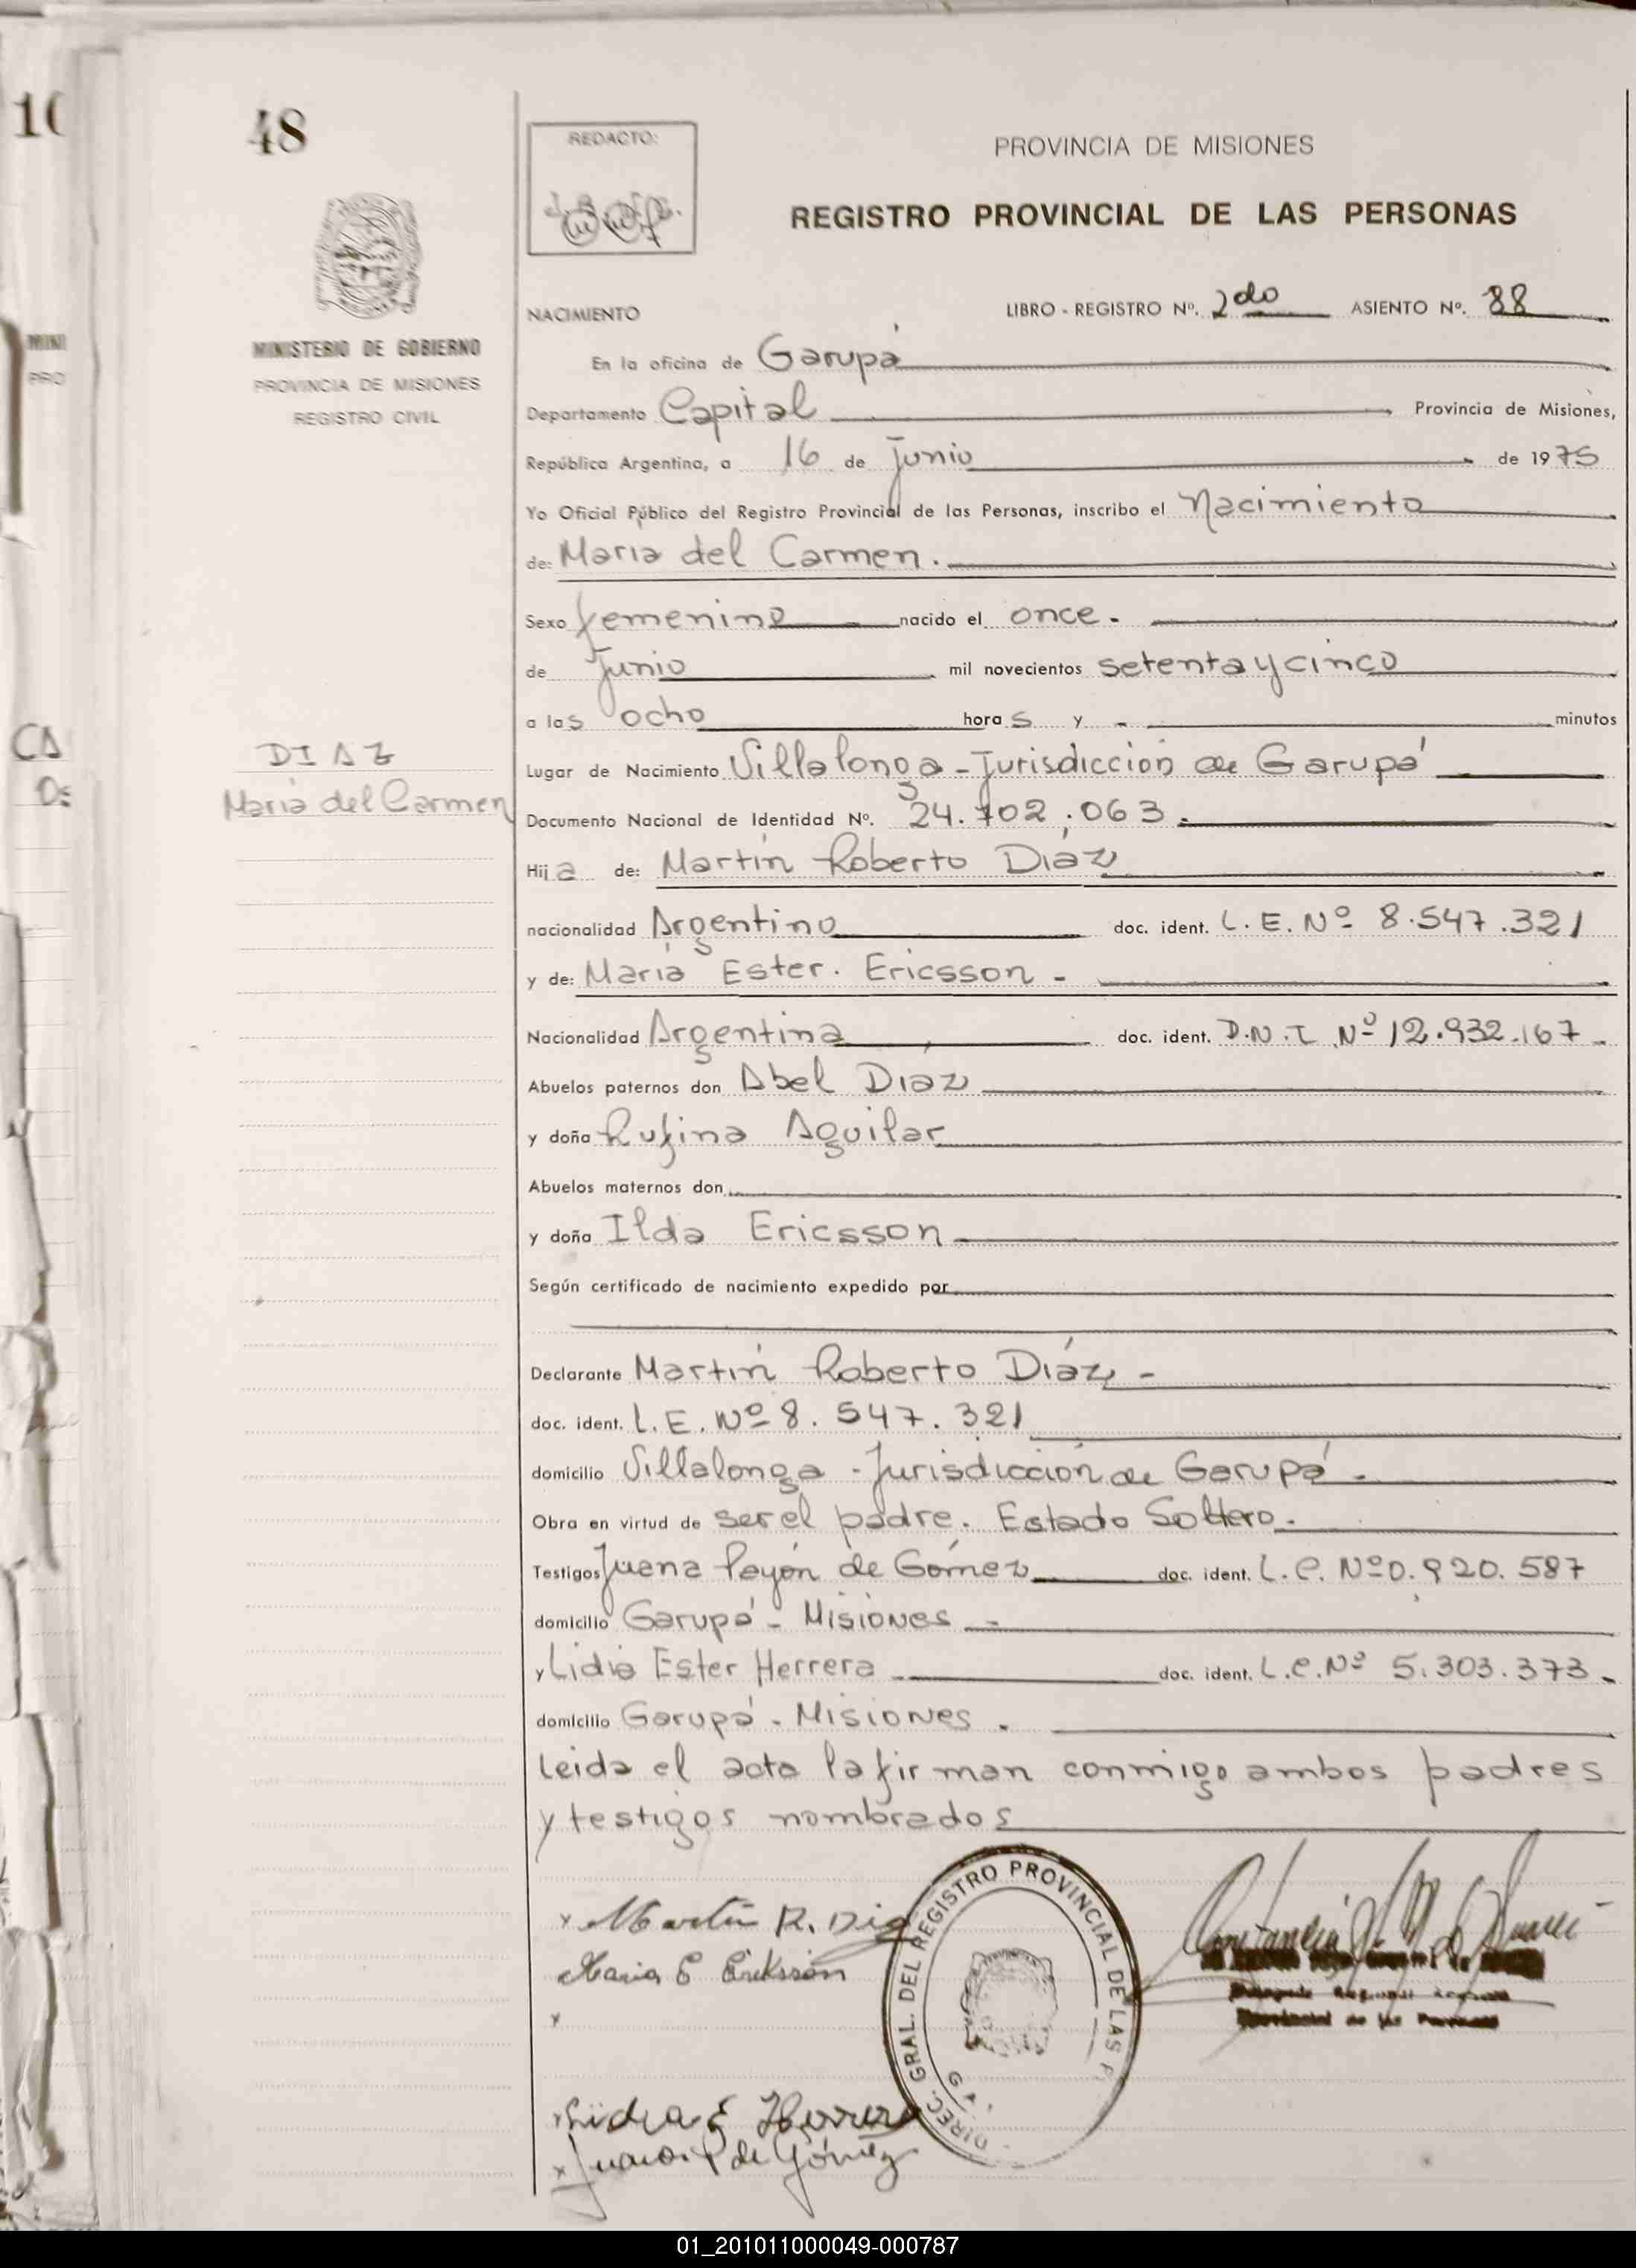 48
REDACTO:
PROVINCIA DE MISIONES
REGISTRO PROVINCIAL DE LAS PERSONAS
MINISTERIO DE GOBIERNO
PROVINCIA DE MISIONES
REGISTRO CIVIL
NACIMIENTO
LIBRO - REGISTRO Nº. 2do ASIENTO Nº. 88
En la oficina de Garupá
Departamento Capital Provincia de Misiones,
República Argentina, a 16 de Junio de 1975
Yo Oficial Público del Registro Provincial de las Personas, inscribo el Nacimiento
de: Maria del Carmen.
Sexo femenino nacido el once.
de Junio mil novecientos setenta y cinco
a las ocho horas y - minutos
DIAZ
Maria del Carmen
Lugar de Nacimiento Villalonga - Jurisdicción de Garupá
Documento Nacional de Identidad Nº. 24.702.063.
Hija de: Martín Roberto Díaz
nacionalidad Argentino doc. ident. L.E. Nº 8.547.321
y de: María Ester. Ericsson -
Nacionalidad Argentina doc. ident. D.N.I. Nº 12.932.167.
Abuelos paternos don Abel Diaz
y doña Rufina Aguilar
Abuelos maternos don
y doña Ilda Ericsson
Según certificado de nacimiento expedido por
Declarante Martín Roberto Díaz -
doc. ident. L.E. Nº 8.547.321
domicilio Villalonga - Jurisdicción de Garupá.
Obra en virtud de ser el padre. Estado Soltero.
Testigos Juana Payón de Gómez doc. ident. L.C. Nº 0.920.587
domicilio Garupá - Misiones -
y Lidia Ester Herrera doc. ident. L.C. Nº 5.303.373.
domicilio Garupá - Misiones.
Leida el acta la firman conmigo ambos padres
y testigos nombrados
x Martín R. Díaz
Maria E Eriksson
x
x Lidia E Herrera
x Juana P de Gómez
DIREC. GRAL. DEL REGISTRO PROVINCIAL DE LAS P
01_201011000049-000787